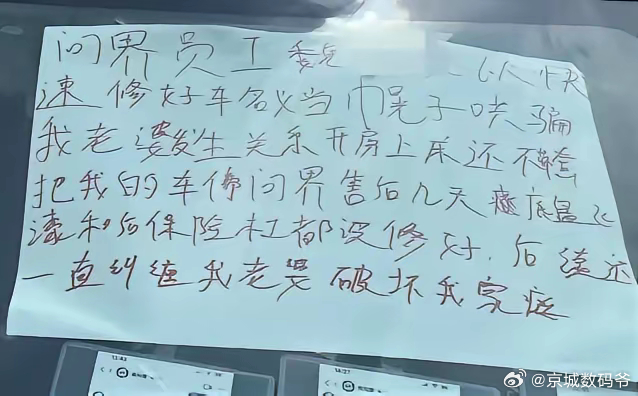 问界员工
速修好车名义当幌子哄骗
我老婆发生关系开房上床还不戴套
把我的车停问界售后几天 底盘
漆和后保险杠都没修好,后续还
一直纠缠我老婆破坏我家庭
13:43
14:27
@京城数码爷